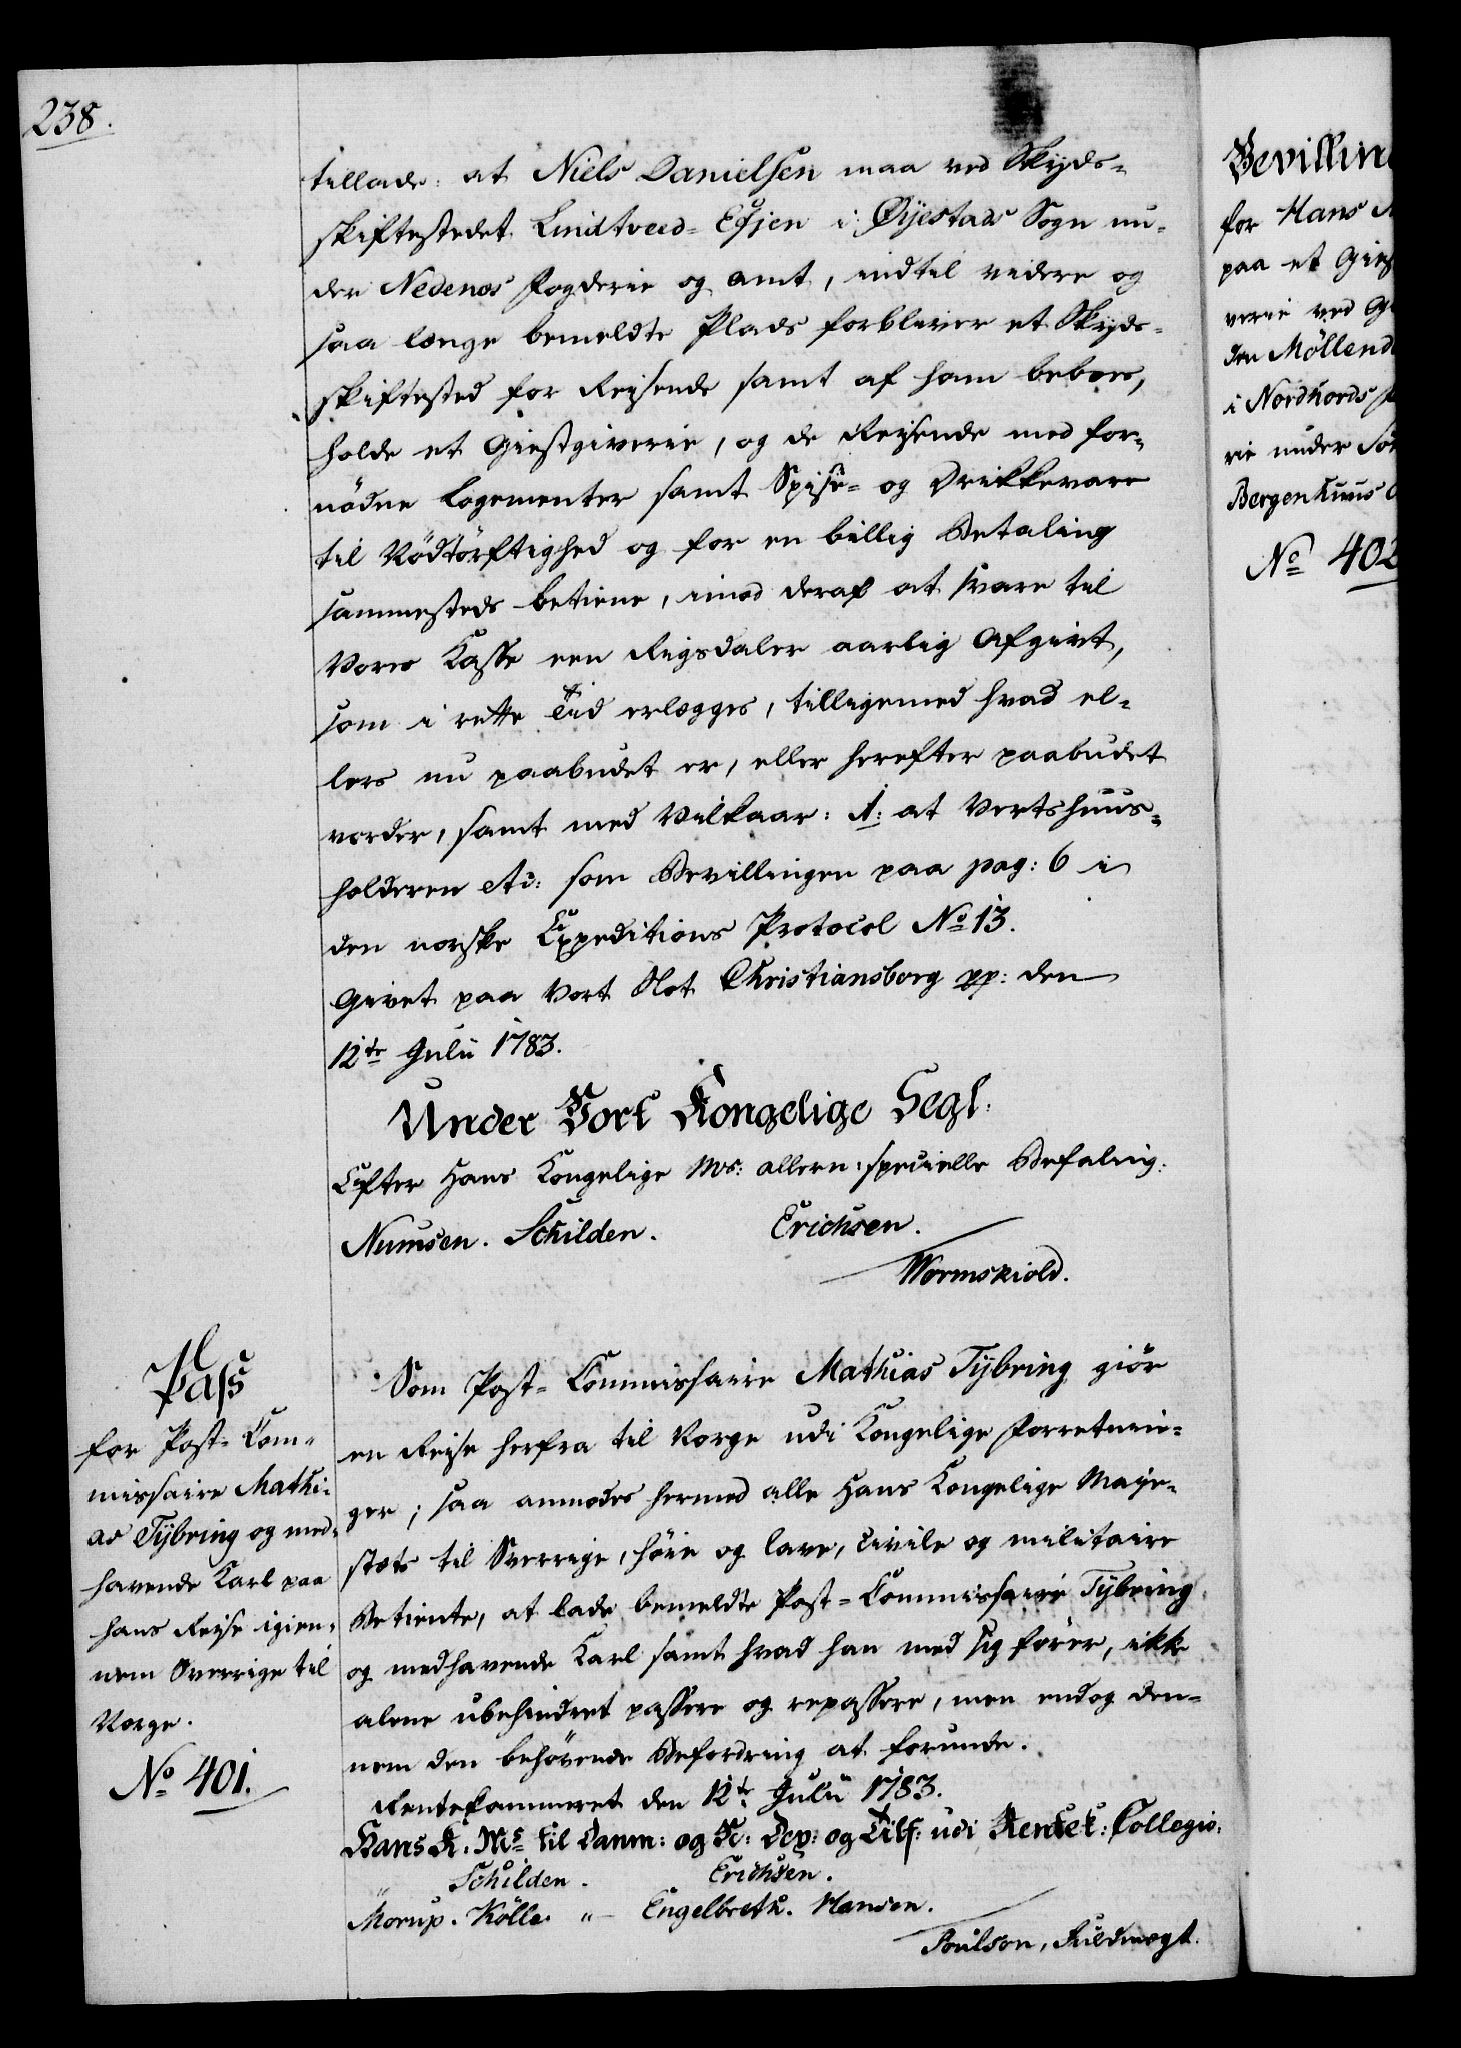 238.
tillade: at Niels Danielsen maa ved Skyds-
skiftestedet Lindtveed-Eijen i Öijestads Sogn un-
der Nedenæs Fogderie og Amt, indtil videre og
saa længe bemeldte Plads forbliver et Skyds-
skiftested for Reisende samt af ham beboes,
holde et Giestgiverie, og de Reisende med for-
nödne Logementer samt Spise- og Drikkevare
til Nödtörftighed og for en billig Betaling
sammesteds betiene, imod deraf at svare til
Vores Kasse een Rigsdaler aarlig Afgivt,
som i rette Tid erlægges, tilligemed hvad el-
lers nu paabudet er, eller herefter paabudet
vorder, samt med Vilkaar: 1: at Vertshuus-
holderen etc: som Bevillingen paa pag: 6 i
den norske Expeditions Protocol No 13.
Givet paa Vort Slot Christiansborg pp: den
12te Julii 1783.
Under Vort Kongelige Segl.
Efter Hans Kongelige Ms: allern: specielle Befaling.
Numsen. Schilden. Erichsen.
Wormskiold.
Pass
for Post-Com-
missaire Mathi-
as Tÿbring og med-
havende Karl paa
hans Reise igien-
nem Sverrige til
Norge.
No 401.
Som Post-Commissaire Mathias Tÿbring giör
en Reise herfra til Norge udi Kongelige Forretnin-
ger; saa anmodes hermed alle Hans Kongelige Maje-
stæts til Sverrige, höie og lave, civile og militaire
Betiente, at lade bemeldte Post-Commissaire Tÿbring
og medhavende Karl samt hvad han med sig förer, ikke
alene ubehindret passere og repassere, men endog den-
nem den behövende Befordring at forunde.
Rentekammeret den 12te Julii 1783.
Hans K. Ms til Danm: og N: Dep: og Tilf: udi Rentek: Collegio:
" Schilden. Erichsen.
Morup. Kölle. " Engelbreth. Hansen.
Poulson, Fuldmægt.
Bevilling
for Hans
paa et Giest
verie ved
den Möllend
i Nordhords
rie under
Bergenhuus
No 402